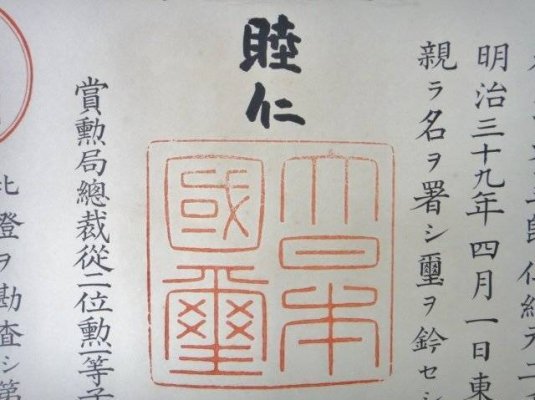 位紀元二
明治三十九年四月一日東
親ラ名ヲ署シ璽ヲ鈐セシ
睦仁
大日本
國璽
賞勲局總裁從二位勲一等子
此證ヲ勘査シ第